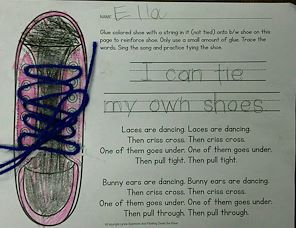 NAME Ella
Glue colored shoe with a string in it (not tied) onto b/w shoe on
this page to reinforce shoe. Only use a small amount of glue. Trace the
words. Sing the song and practice tying the shoe.
I can tie
my own shoes
Laces are dancing. Laces are dancing.
Then criss cross. Then criss cross.
One of them goes under. One of them goes under.
Then pull tight. Then pull tight.
Bunny ears are dancing. Bunny ears are dancing.
Then criss cross. Then criss cross.
One of them goes under. One of them goes under.
Then pull through. Then pull through.